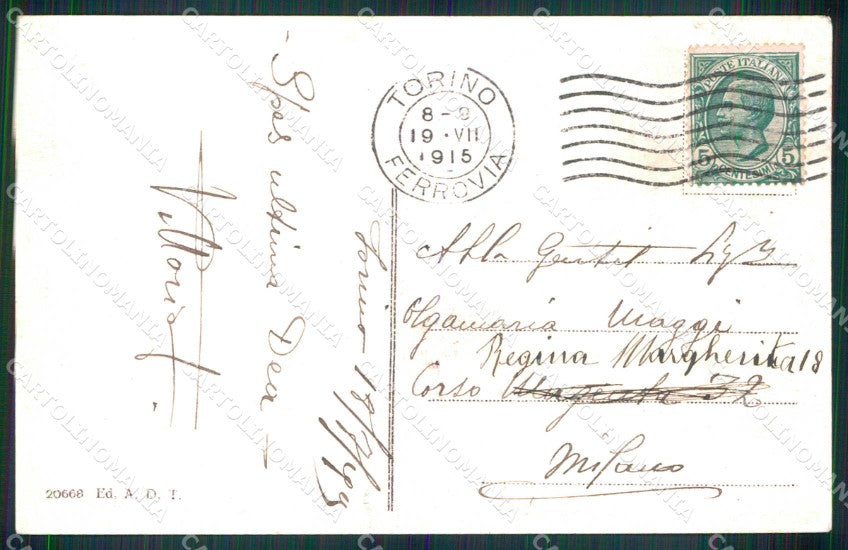 - Spes ultima Dea -
Torino 18/7/915
TORINO
8-9
19·VII
1915
FERROVIA
POSTE ITALIANE
5 5
CENTESIMI
Alla Gentil Sig.
Olgamaria Maggi
Regina Margherita 18
Corso Magenta 32
Milano
20668 Ed. A. D. T.
CARTOLINOMANIA